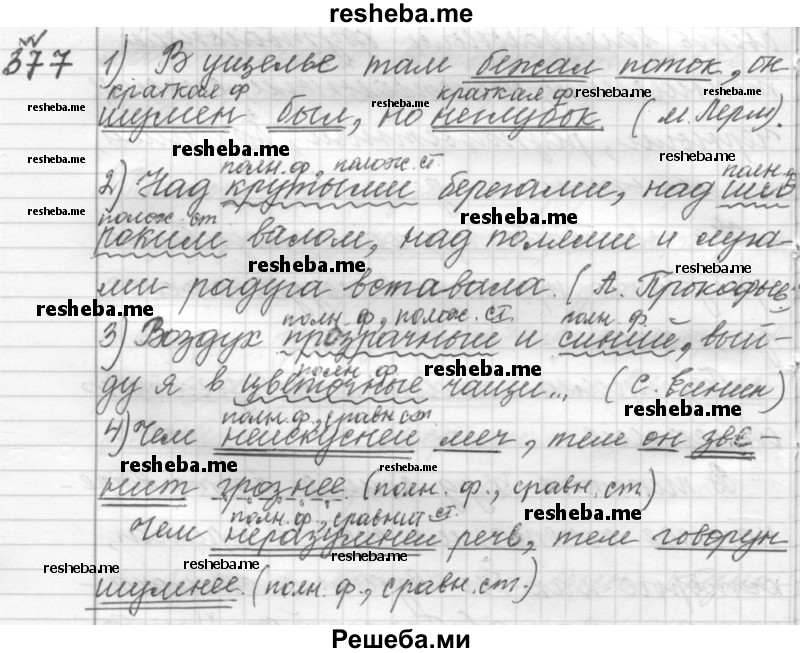 resheba.me
377 1) В ущелье там бежал поток, он
краткая ф краткая ф resheba.me resheba.me
resheba.me resheba.me
шумен был, но неглубок (М. Лерм).
resheba.me
resheba.me resheba.me
полн. ф, полож. ст. полн. ф
2) Над крутыми берегами, над ши-
resheba.me resheba.me
полож. ст
роким валом, над полями и луга-
resheba.me resheba.me
ми радуга вставала. (А. Прокофьев
resheba.me
полн. ф, полож. ст. полн. ф.
3) Воздух прозрачный и синий, вый-
полн. ф. resheba.me
ду я в цветочные чащи... (С. Есенин)
resheba.me
полн. ф, сравн ст.
4) Чем неискусней меч, тем он зве-
resheba.me resheba.me
нит грознее. (полн. ф., сравн. ст.)
resheba.me
полн. ф, сравнит ст.
Чем неразумней речь, тем говорун
resheba.me resheba.me resheba.me
шумнее. (полн. ф., сравн. ст.)
Решеба.ми